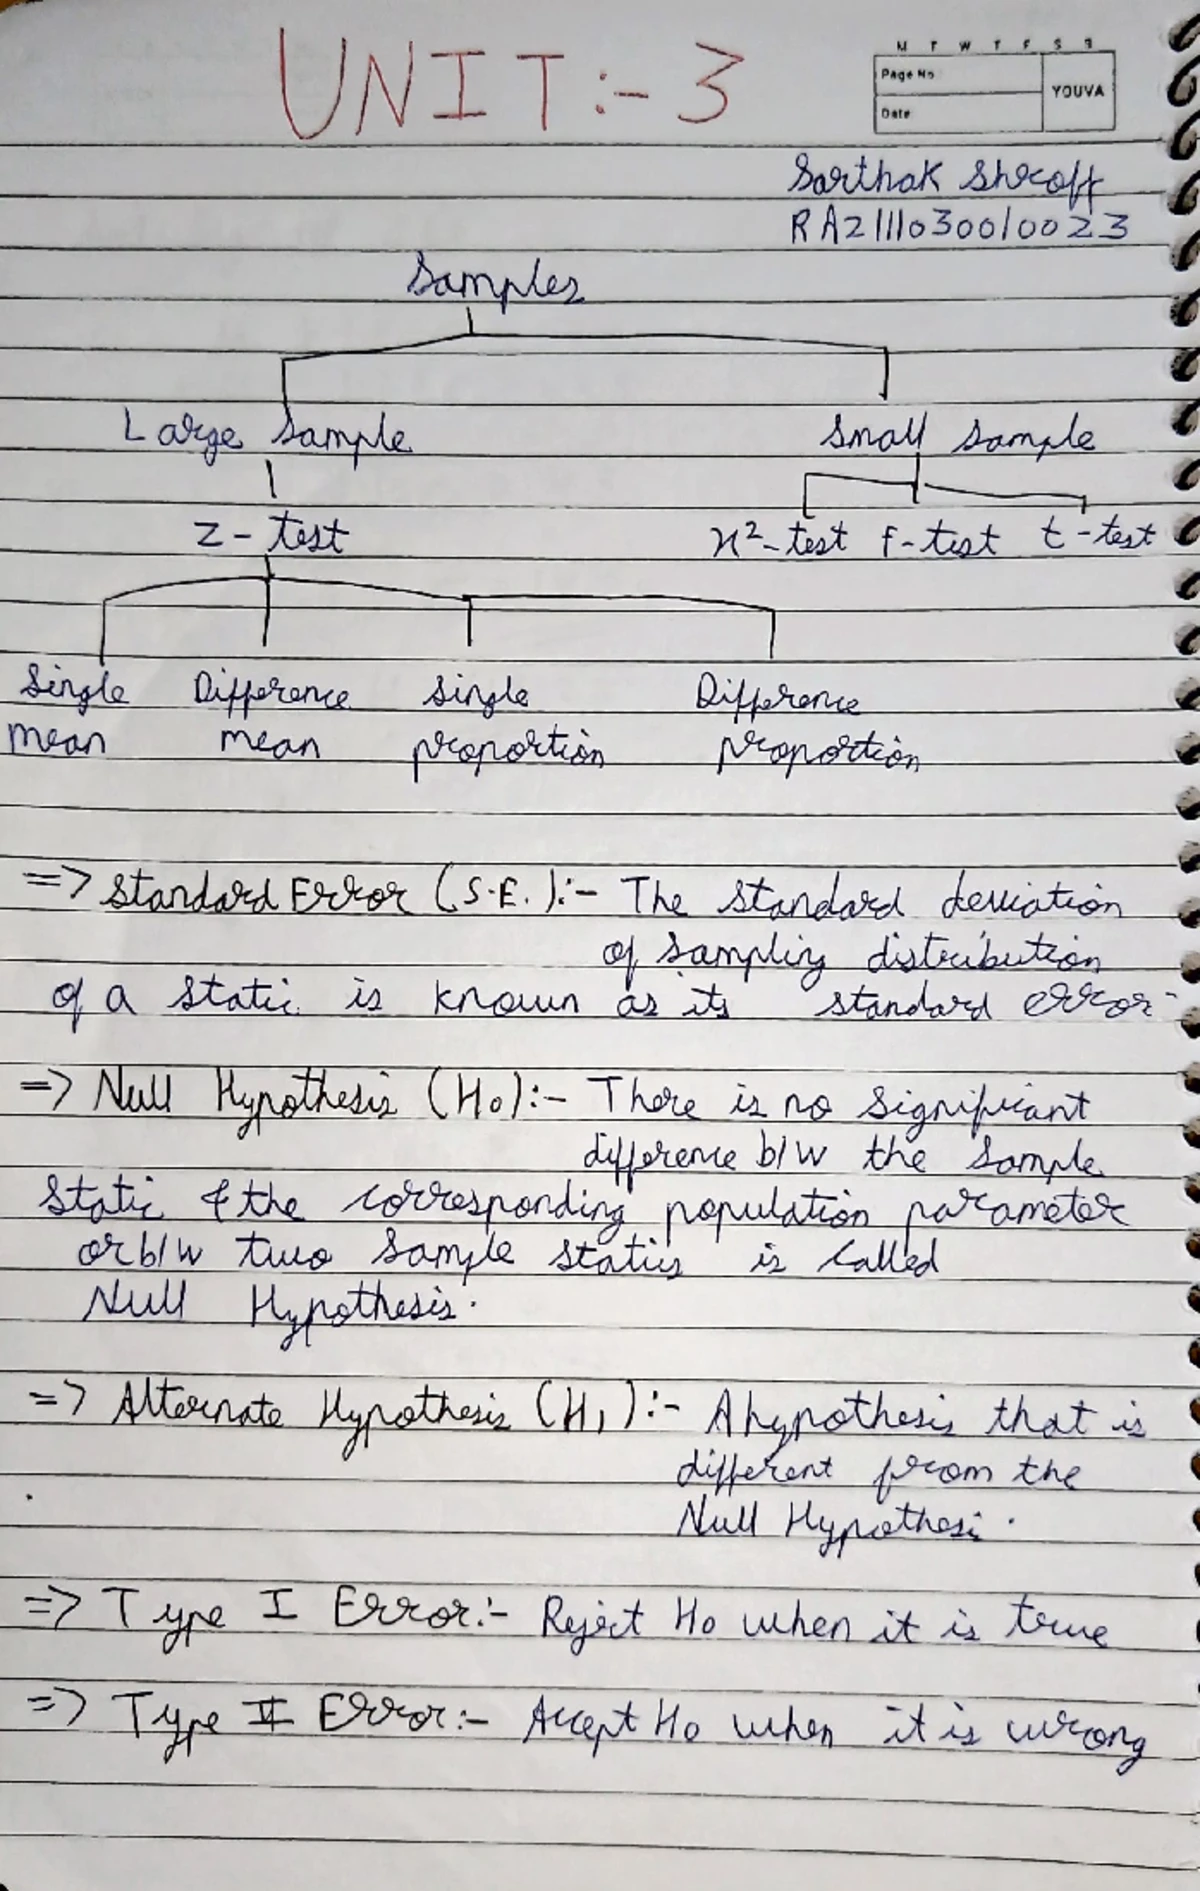 UNIT:- 3
M T W T F S S
Page No
YOUVA
Date
Sarthak Shroff
RA2111030010023
Samples
Large Sample Small Sample
Z-test χ²-test F-test t-test
Single Difference Single Difference
mean mean proportion proportion
=> Standard Error (S.E.):- The standard deviation
of sampling distribution
of a static is known as its standard error
=> Null Hypothesis (H0):- There is no significant
difference b/w the sample
static & the corresponding population parameter
or b/w two sample statics is called
Null Hypothesis.
=> Alternate Hypothesis (H1):- A hypothesis that is
different from the
Null Hypothesi.
=> Type I Error:- Reject H0 when it is true
=> Type II Error:- Accept H0 when it is wrong